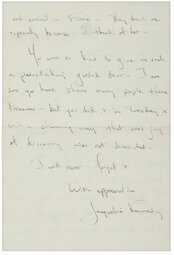 and around in France - They took me
especially because I think of her -
You were so kind to give us such
a painstaking guided tour - I am
sure you have shown many people these
treasures - but you did it on Tuesday in
such a charming way that each joy
of discovery was not diminished.
I will never forget it.
With appreciation
Jacqueline Kennedy